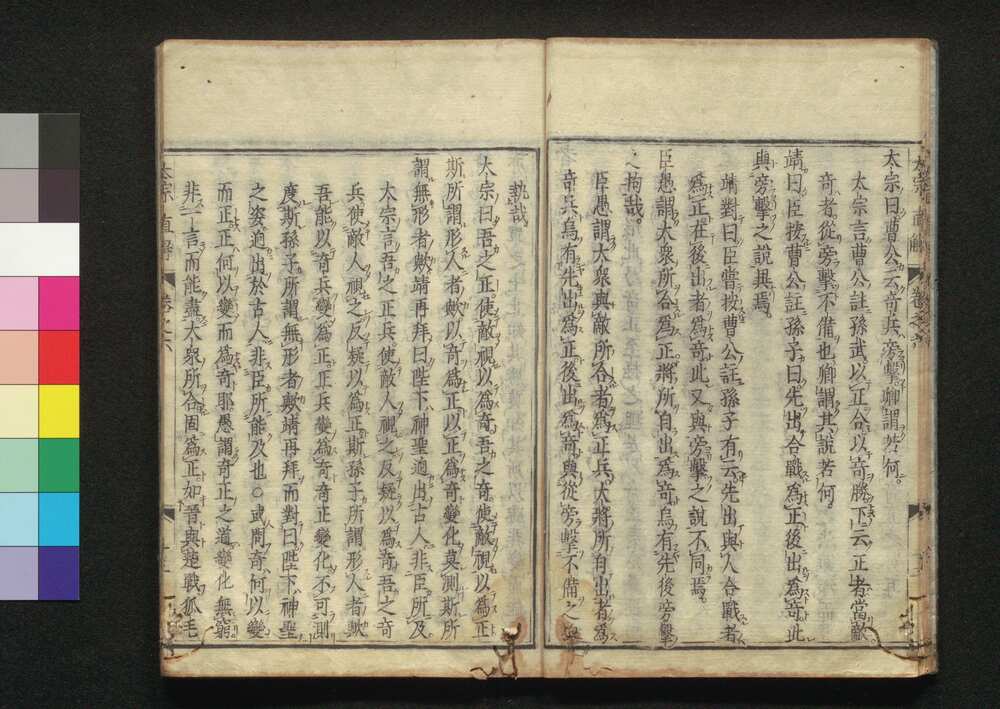 太宗曰曹公云奇兵旁擊卿謂若何
太宗言曹公註孫武以正合以奇勝下云正者當敵
奇者從旁擊不備也卿謂其説若何
靖曰臣按曹公註孫子曰先出合戰為正後出為奇此
與旁擊之説異焉
靖對曰臣嘗按曹公註孫子有云先出與人合戰者
為正在後出者為奇此又與旁擊之説不同焉
臣愚謂大衆所合為正將所自出為奇烏有先後旁擊
之拘哉
臣愚謂大衆與敵所合者為正兵大將所自出者為
奇兵烏有先出為正後出為奇與從旁擊不備之
執哉
太宗曰吾之正使敵視以為奇吾之奇使敵視以為正
斯所謂形人者歟以奇為正以正為奇變化莫測斯所
謂無形者歟靖再拜曰陛下神聖迥出古人非臣所及
太宗言吾之正兵使敵人視之反疑以為奇吾之奇
兵使敵人視之反疑以為正斯孫子所謂形人者歟
吾能以奇兵變為正正兵變為奇奇正變化不可測
度斯孫子所謂無形者歟靖再拜而對曰陛下神聖
之姿迥出於古人非臣所能及也○或問奇何以變
而為正正何以變而為奇耶愚謂奇正之道變化無窮
非一言而能盡大衆所合固為正如晋與楚戰狐毛